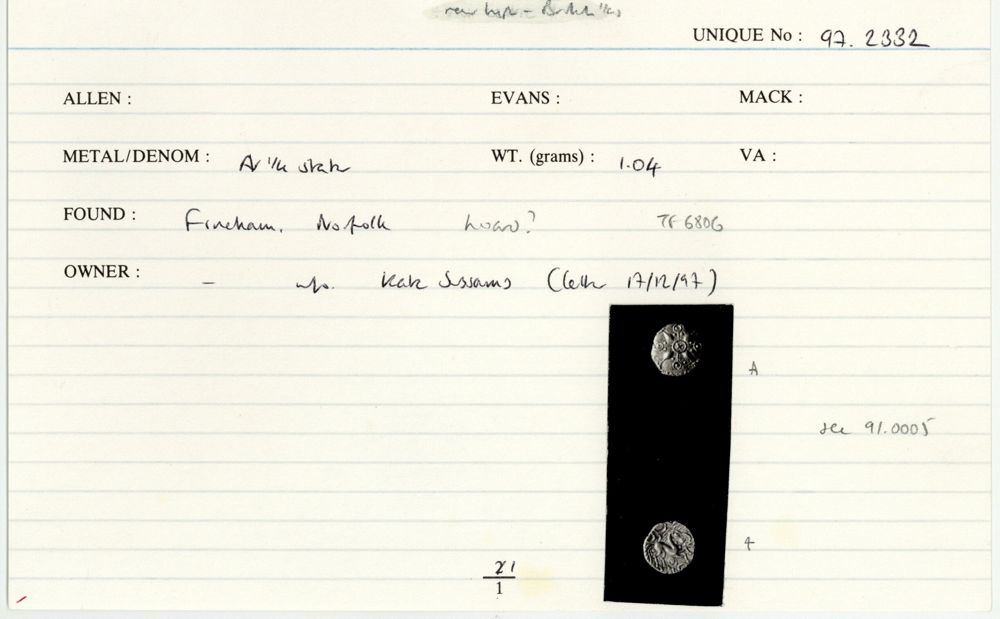 UNIQUE No : 97. 2332
ALLEN : EVANS : MACK :
METAL/DENOM : AV 1/4 stater WT. (grams) : 1.04 VA :
FOUND : Fincham, Norfolk hoard? TF 6806
OWNER : – info. Kate Sussams (letter 17/12/97)
A
see 91.0005
4
21
1